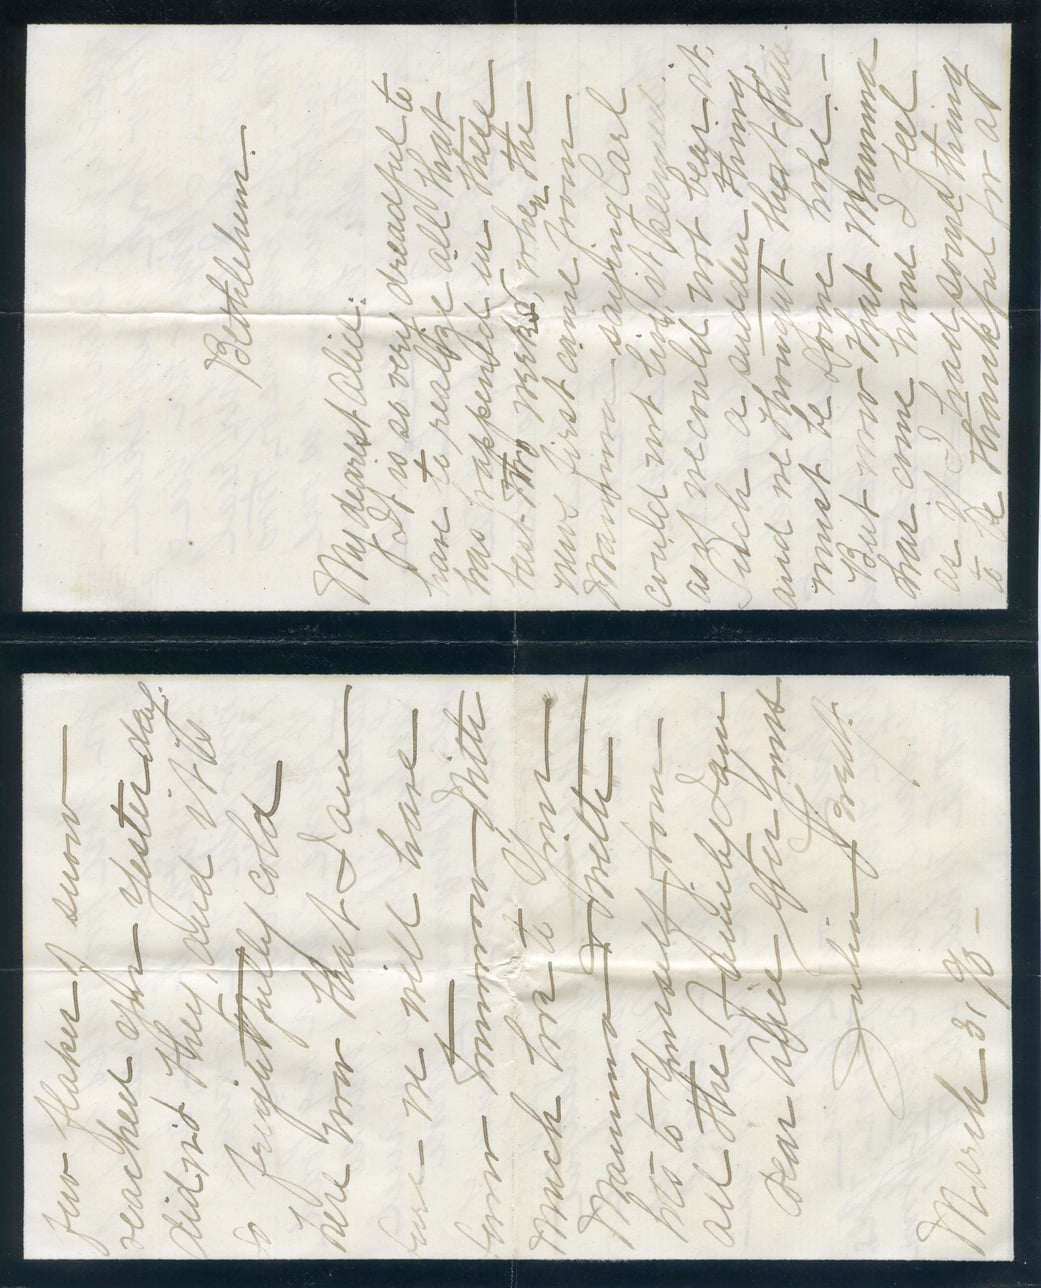 Bethlehem.
My dearest Alice:
It is so very dreadful to
have to realize all that
has happened in these
last two weeks when the
news first came from
Mamma saying Carl
could not live it seemed
as if we could not bear it.
Such a sudden thing
and we thought that this
must be some hope.
But now that Mamma
has come home I feel
as if I had something
to be thankful for at
few flakes of snow
reached you yesterday
did not they, and it is
so frightfully cold
here now that I am
sure we will have
some tomorrow. With
much love to Your
Mamma Nellie
kiss to yourself from
all the Family I am
dear Alice Yours
Julia
March 31, 90